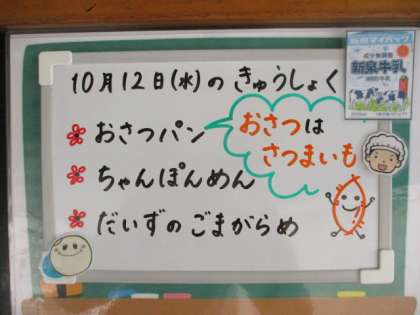 10月12日(水)のきゅうしょく
おさつパン
ちゃんぽんめん
だいずのごまがらめ
おさつは
さつまいも
新泉牛乳